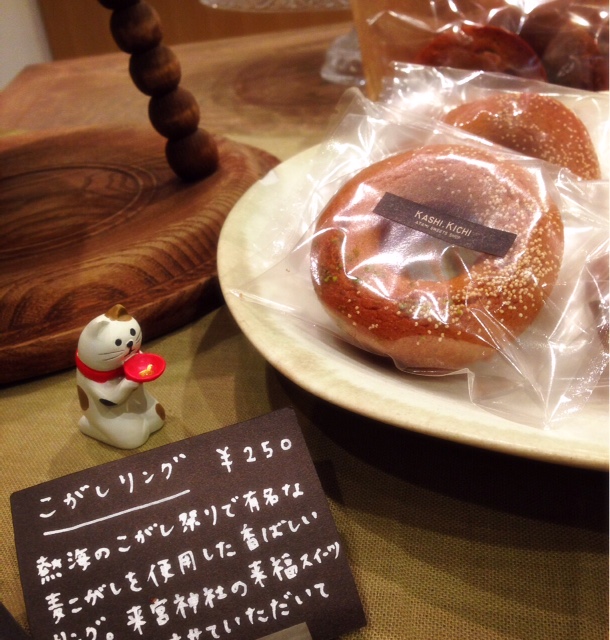 KASHI.KICHI
ATAMI SWEETS SHOP
こがしリング ¥250
熱海のこがし祭りで有名な
麦こがしを使用した香ばしい
リング。来宮神社の来福スイーツ
させていただいて